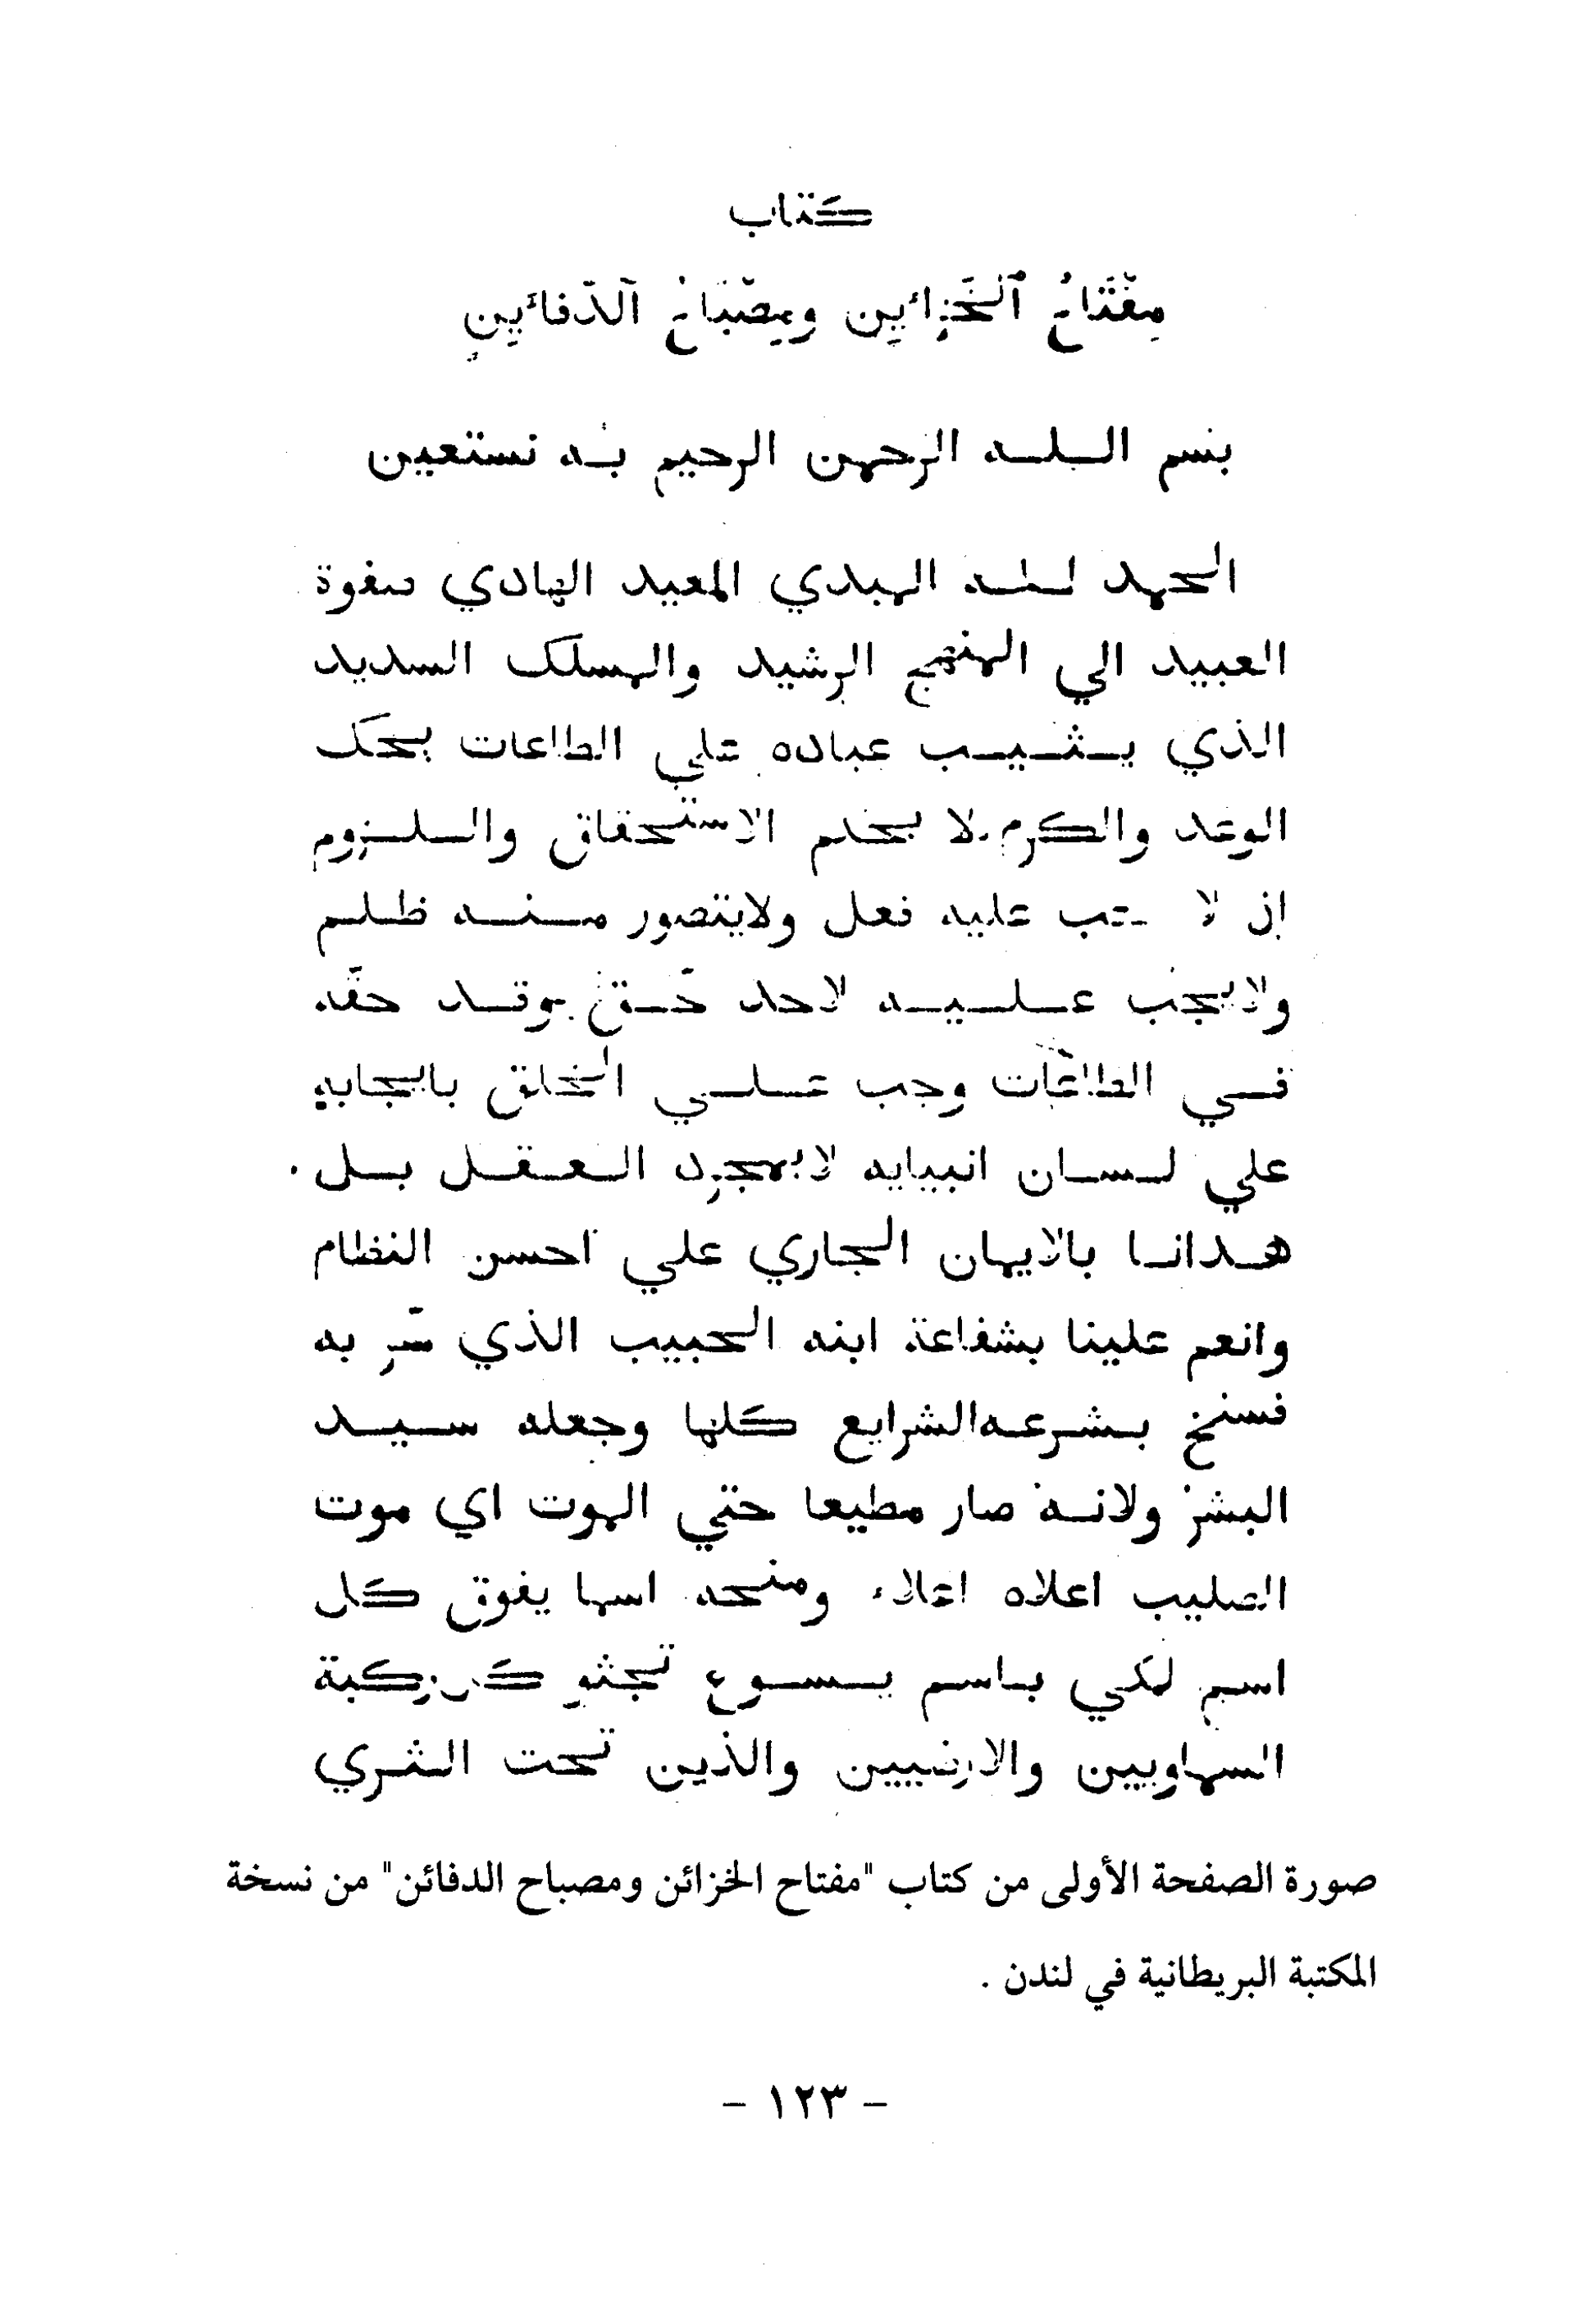 كتاب
مِفْتَاحُ ٱلْخَزائِينِ ومِصْبَاحُ ٱلدَّفائِينِ
بسم اللـه الرحمن الرحيم بـه نستعين
الحمد للـه المبدي المعيد الهادي صفوة
العبيد الي المنهج الرشيد والمسلك السديد
الذي يـثـيـب عباده علي الطاعات بحكـ
الوعد والكرم لا بحكم الاستحقاق واللـزوم
اذ لا عليه فعل ولايتصور مـنـه ظلـم
ولايجب عـلـيـه لاحد حَـق وقـد حقّه
فـي الطاعات وجب عـلـي الخلق بايجابه
علي لـسـان انبيايه لابمجرد الـعـقـل بـل
هـدانـا بالايمان الجاري علي احسن النظام
وانعم علينا بشفاعة ابنه الحبيب الذي سّر به
فسنخ بـشـرعـه الشرايع كلها وجعله سـيـد
البشر ولانـه صار مطيعا حتي الموت اي موت
الصليب اعلاه اعلاء ومنحه اسما يفوق كل
اسم لكي بـاسم يـسـوع تجثو كل ركبة
السماويين والارضيين والذين تحت الـثـري
صورة الصفحة الأولى من كتاب "مفتاح الخزائن ومصباح الدفائن" من نسخة
المكتبة البريطانية في لندن .
- ١٢٣ -